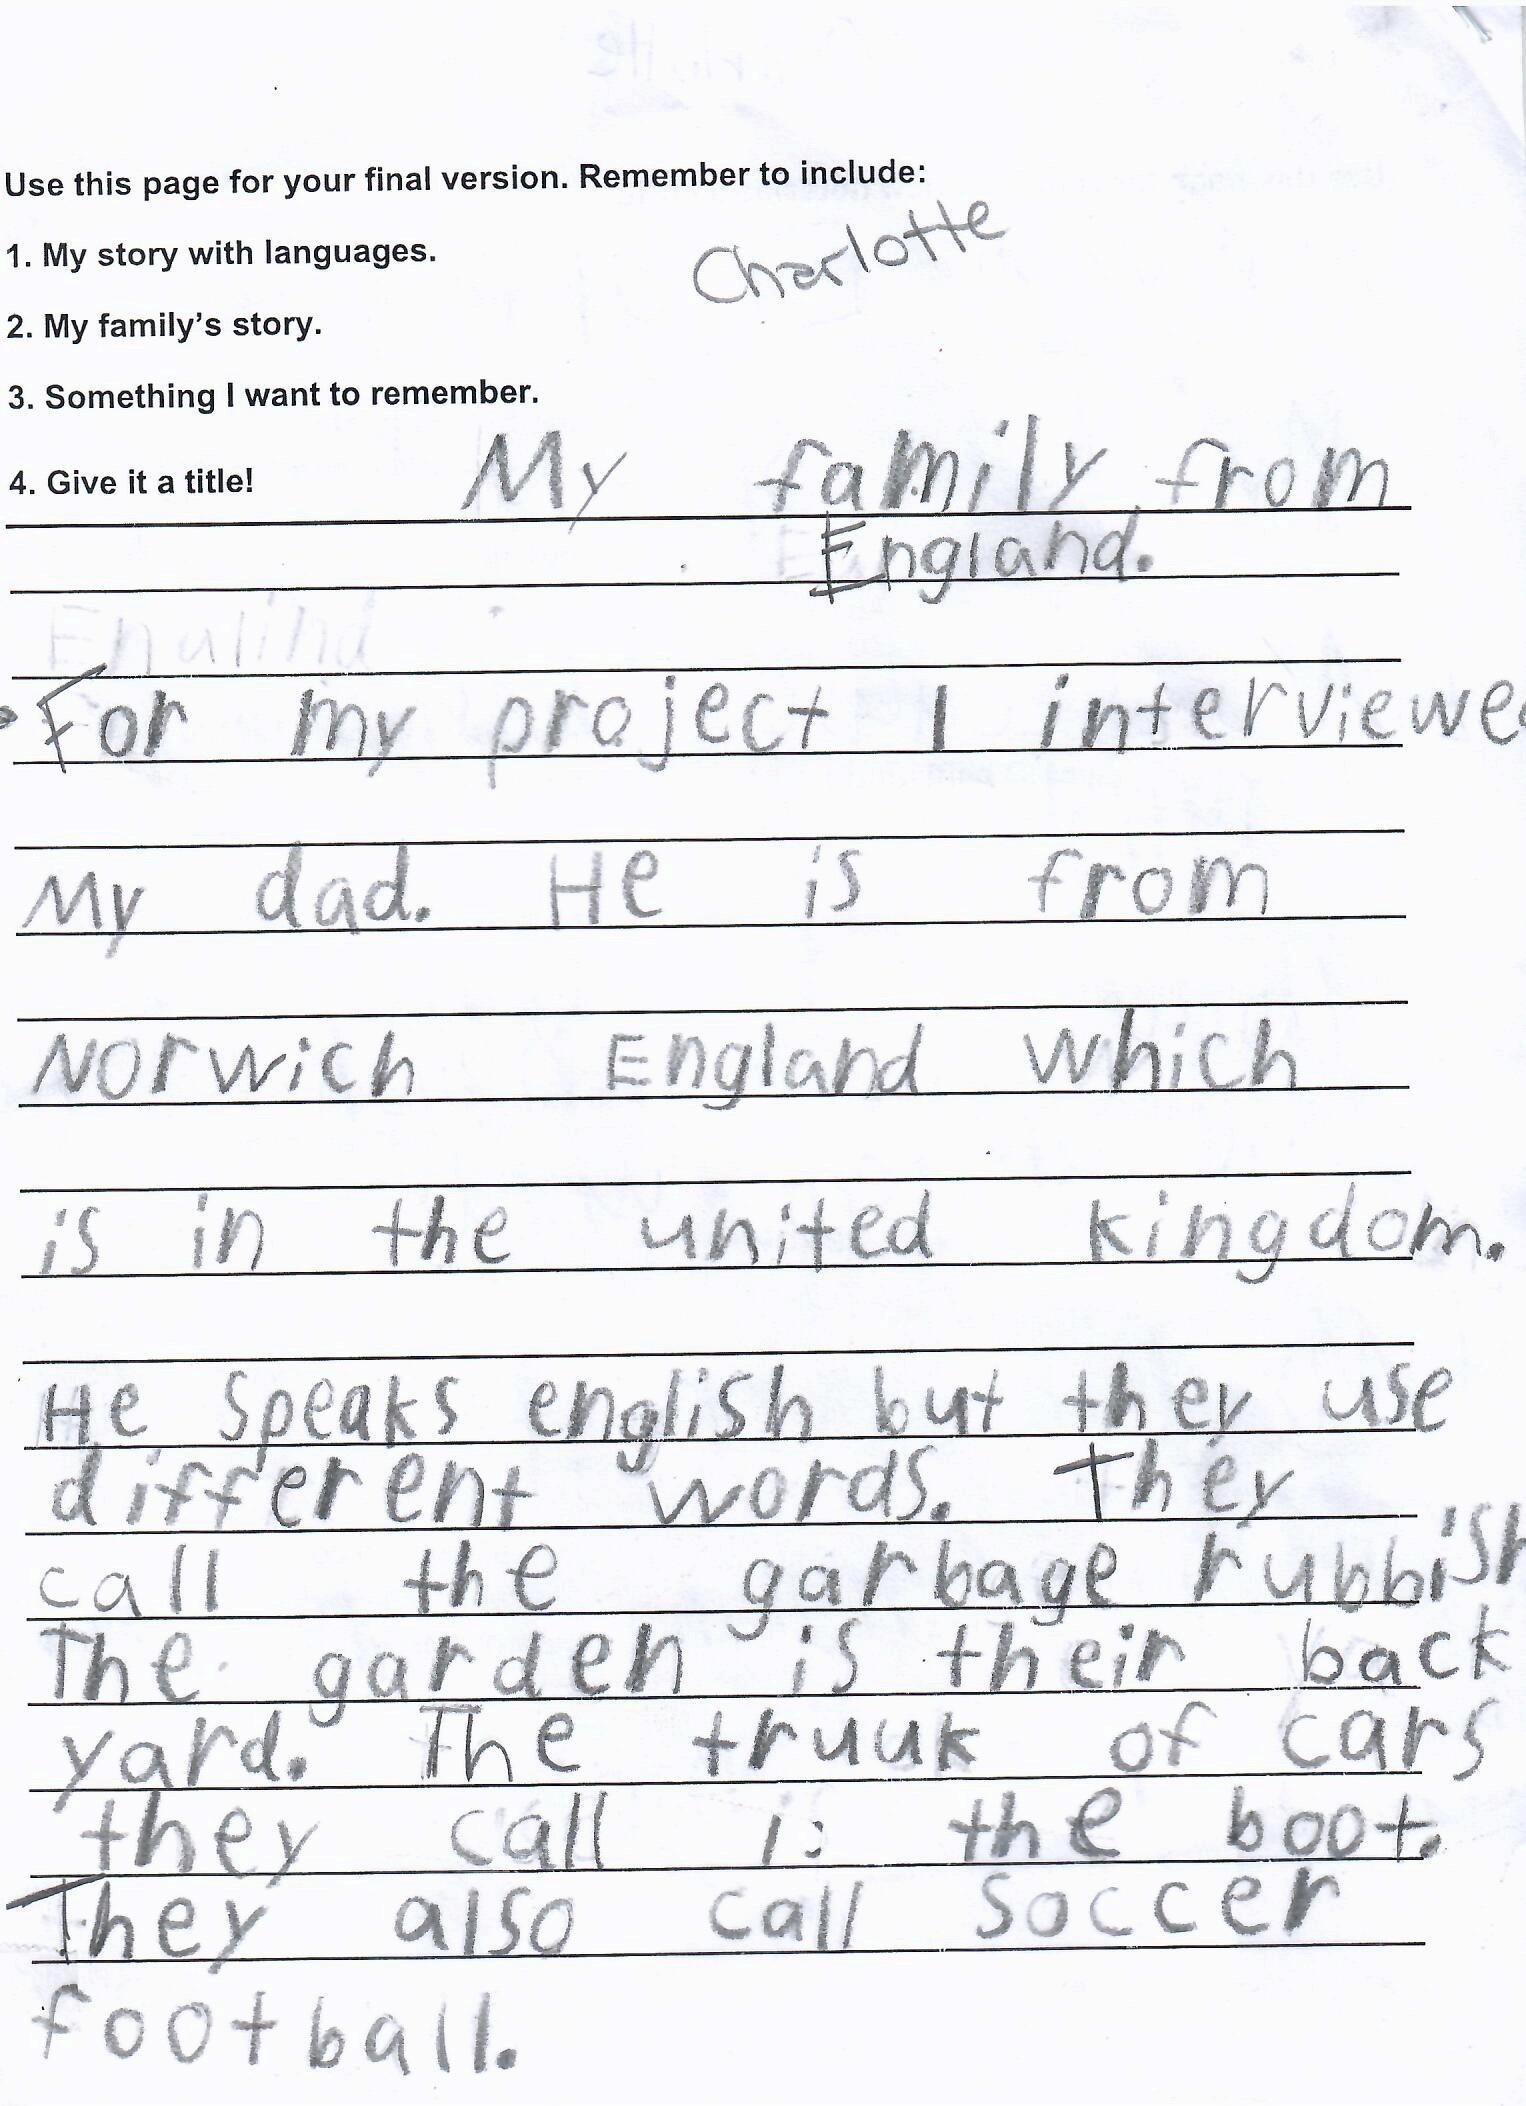 Use this page for your final version. Remember to include:
1. My story with languages.
Charlotte
2. My family's story.
3. Something I want to remember.
4. Give it a title!
My family from
England.
For my project I interviewe
My dad. He is from
Norwich England which
is in the united kingdom.
He speaks english but they use
different words. They
call the garbage rubbish
The garden is their back
yard. The truuk of cars
they call the boot.
They also call soccer
football.